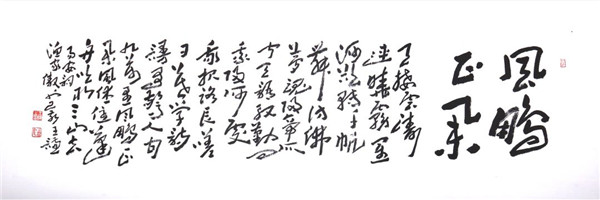 風鵬
正舉
天接雲濤
連曉霧星
河欲轉千帆
舞彷彿
夢魂歸帝所
聞天語殷勤
問我歸何處
我報路長嗟
日暮學詩
謾有驚人句
九萬里風鵬正
舉風休住蓬
舟吹取三山去
易安詞
漁家傲